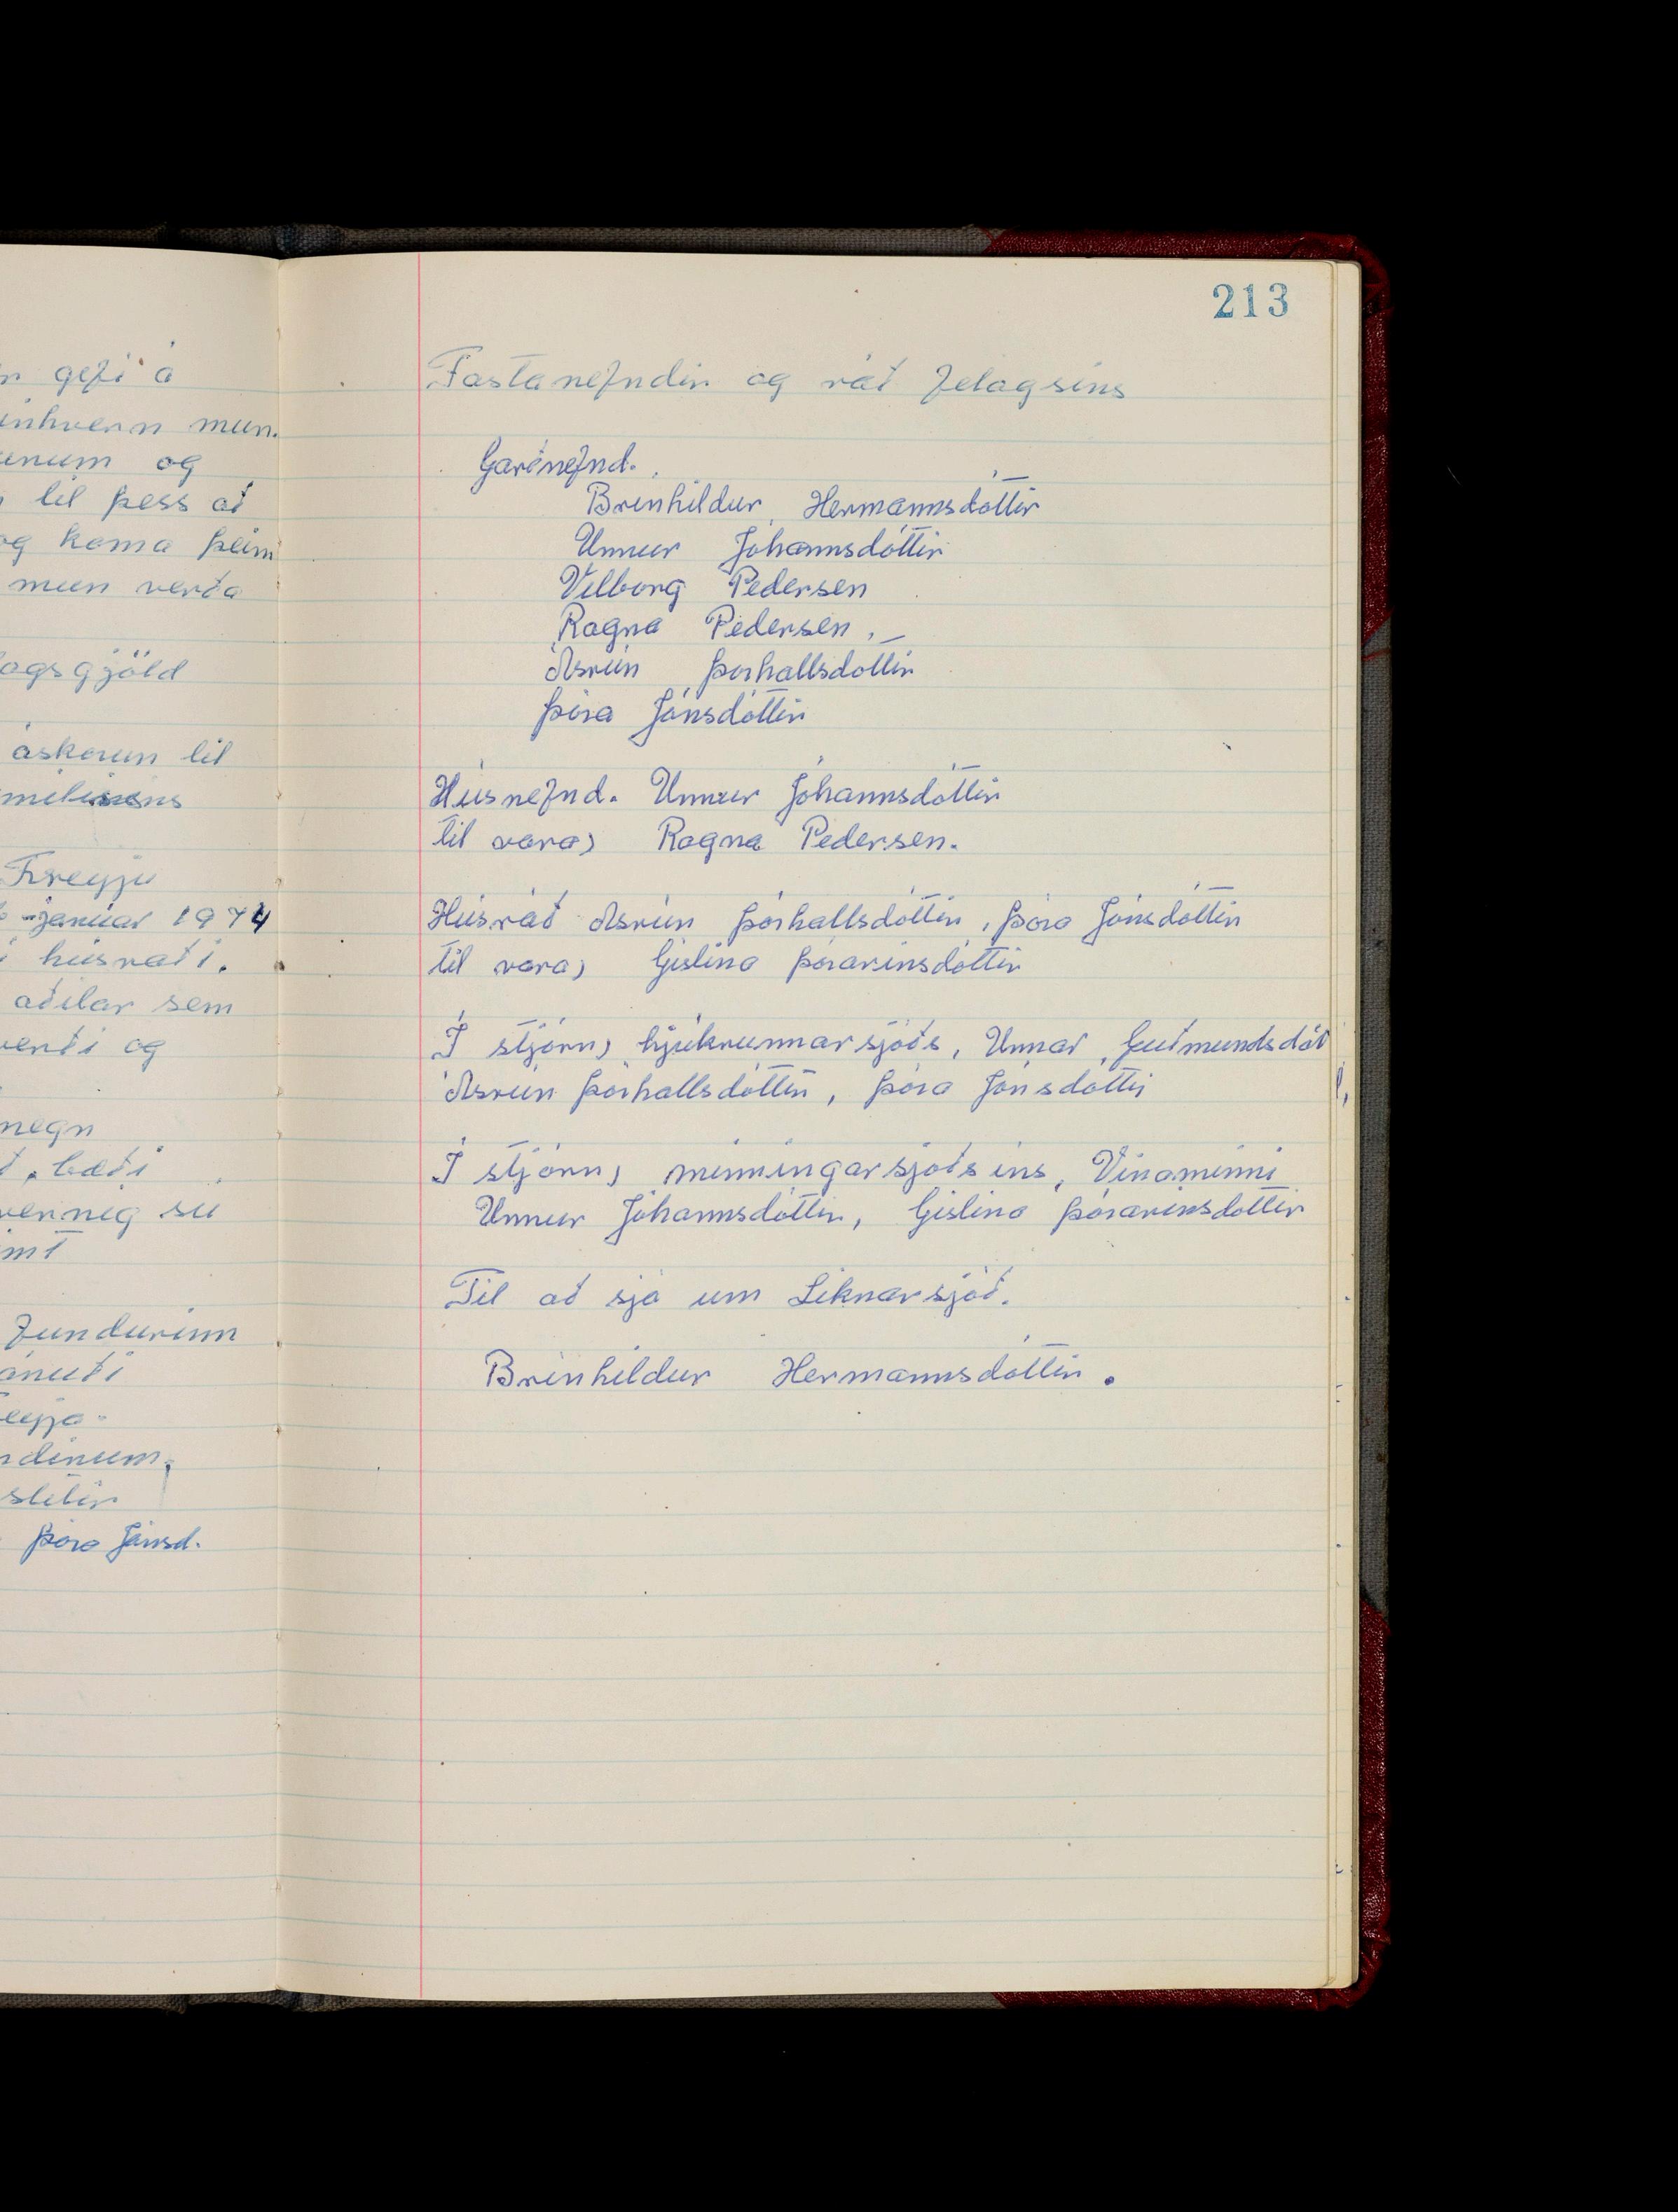 gefi á
einhvern mun.
og
til þess að
og koma þeim
mun verða
gjöld
áskorun til
Freyju
janúar 1974
í húsráði.
aðilar sem
og
megn
bæði
sú
fundurinn
slitin
Þóra Jónsd.
213
Fastanefndir og ráð félagsins
Garðnefnd.
Brinhildur Hermannsdóttir
Unnur Jóhannsdóttir
Vilborg Pedersen
Ragna Pedersen.
Ásrún Þórhallsdóttir
Þóra Jónsdóttir
Húsnefnd. Unnur Jóhannsdóttir
til vara, Ragna Pedersen.
Húsráð Ásrún Þórhallsdóttir, Þóra Jónsdóttir
til vara, Gíslína Þórarinsdóttir
Í stjórn, hjúkrunnarsjóðs, Unnar Guðmundsdót
Ásrún Þórhallsdóttir, Þóra Jónsdóttir
Í stjórn, minningarsjóðsins, Vinaminni
Unnur Jóhannsdóttir, Gíslína Þórarinsdóttir
Til að sjá um Líknarsjóð.
Brinhildur Hermannsdóttir.